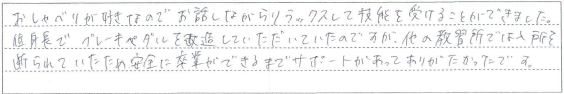 おしゃべりが好きなので お話しながらリラックスして技能を受けることができました。
低身長で ブレーキペダルを改造していただいていたのですが、他の教習所では入所を
断られていたため安全に卒業ができるまでサポートがあってありがたかったです。